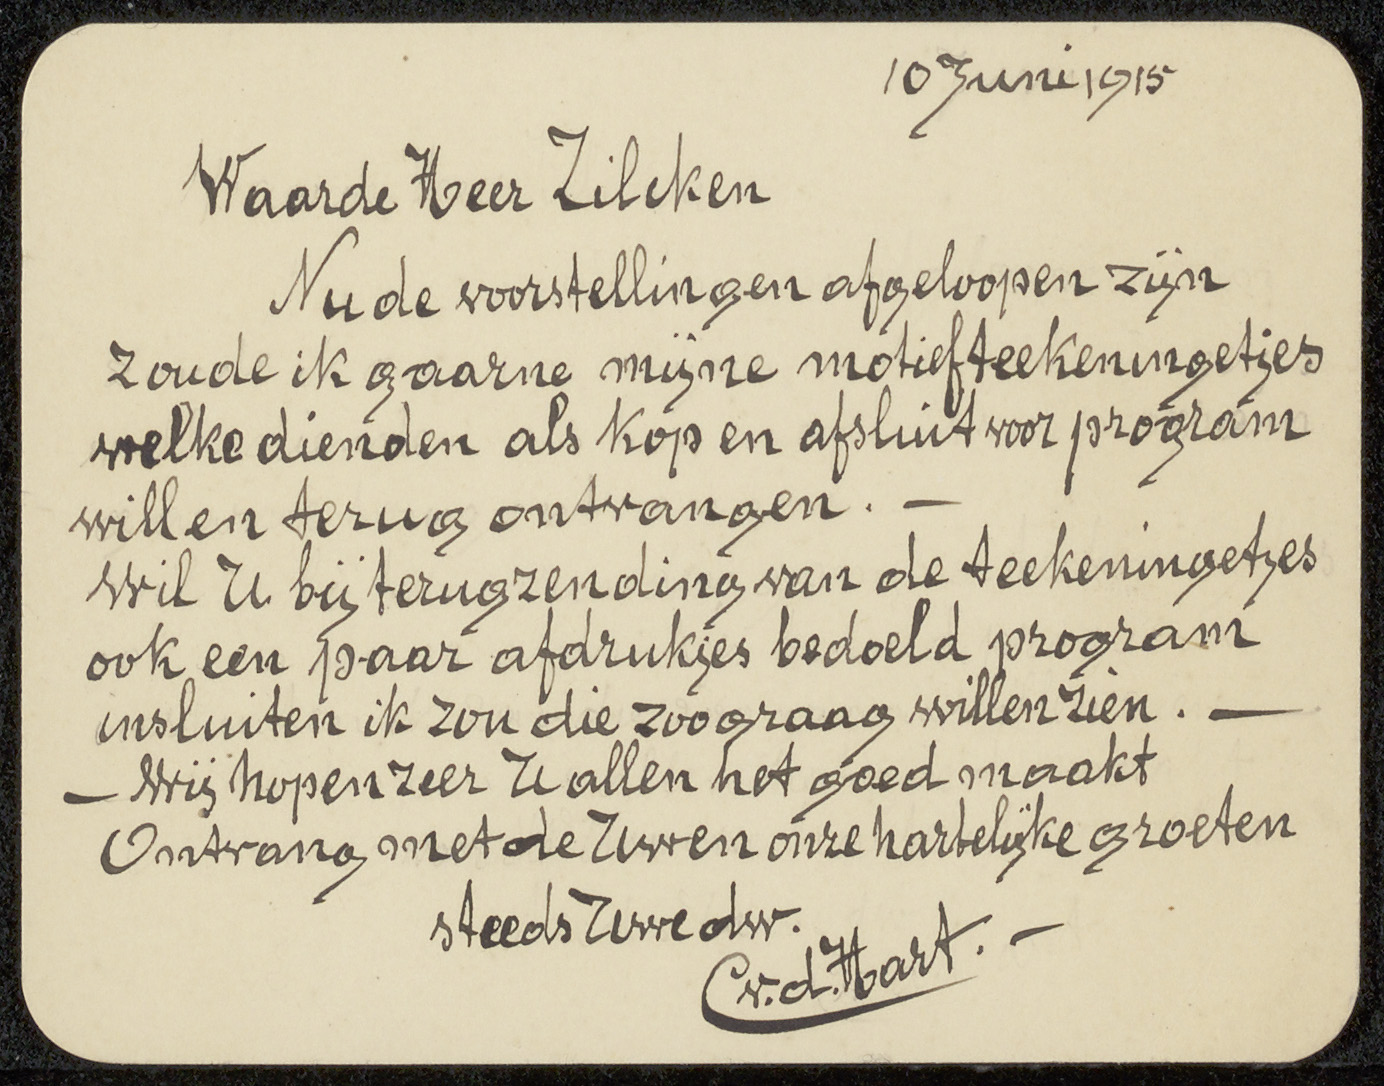 10 Juni 1915
Waarde Heer Zilcken
Nu de voorstellingen afgeloopen zijn
zoude ik gaarne mijne motiefteekeningetjes
welke dienden als kop en afsluit voor program
willen terug ontvangen. —
Wil U bij terugzending van de teekeningetjes
ook een paar afdrukjes bedoeld program
insluiten ik zou die zoo graag willen zien. —
— Wij hopen zeer U allen het goed maakt
Ontvang met de Uwen onze hartelijke groeten
steeds Uwe dw.
C v. d. Hart. —